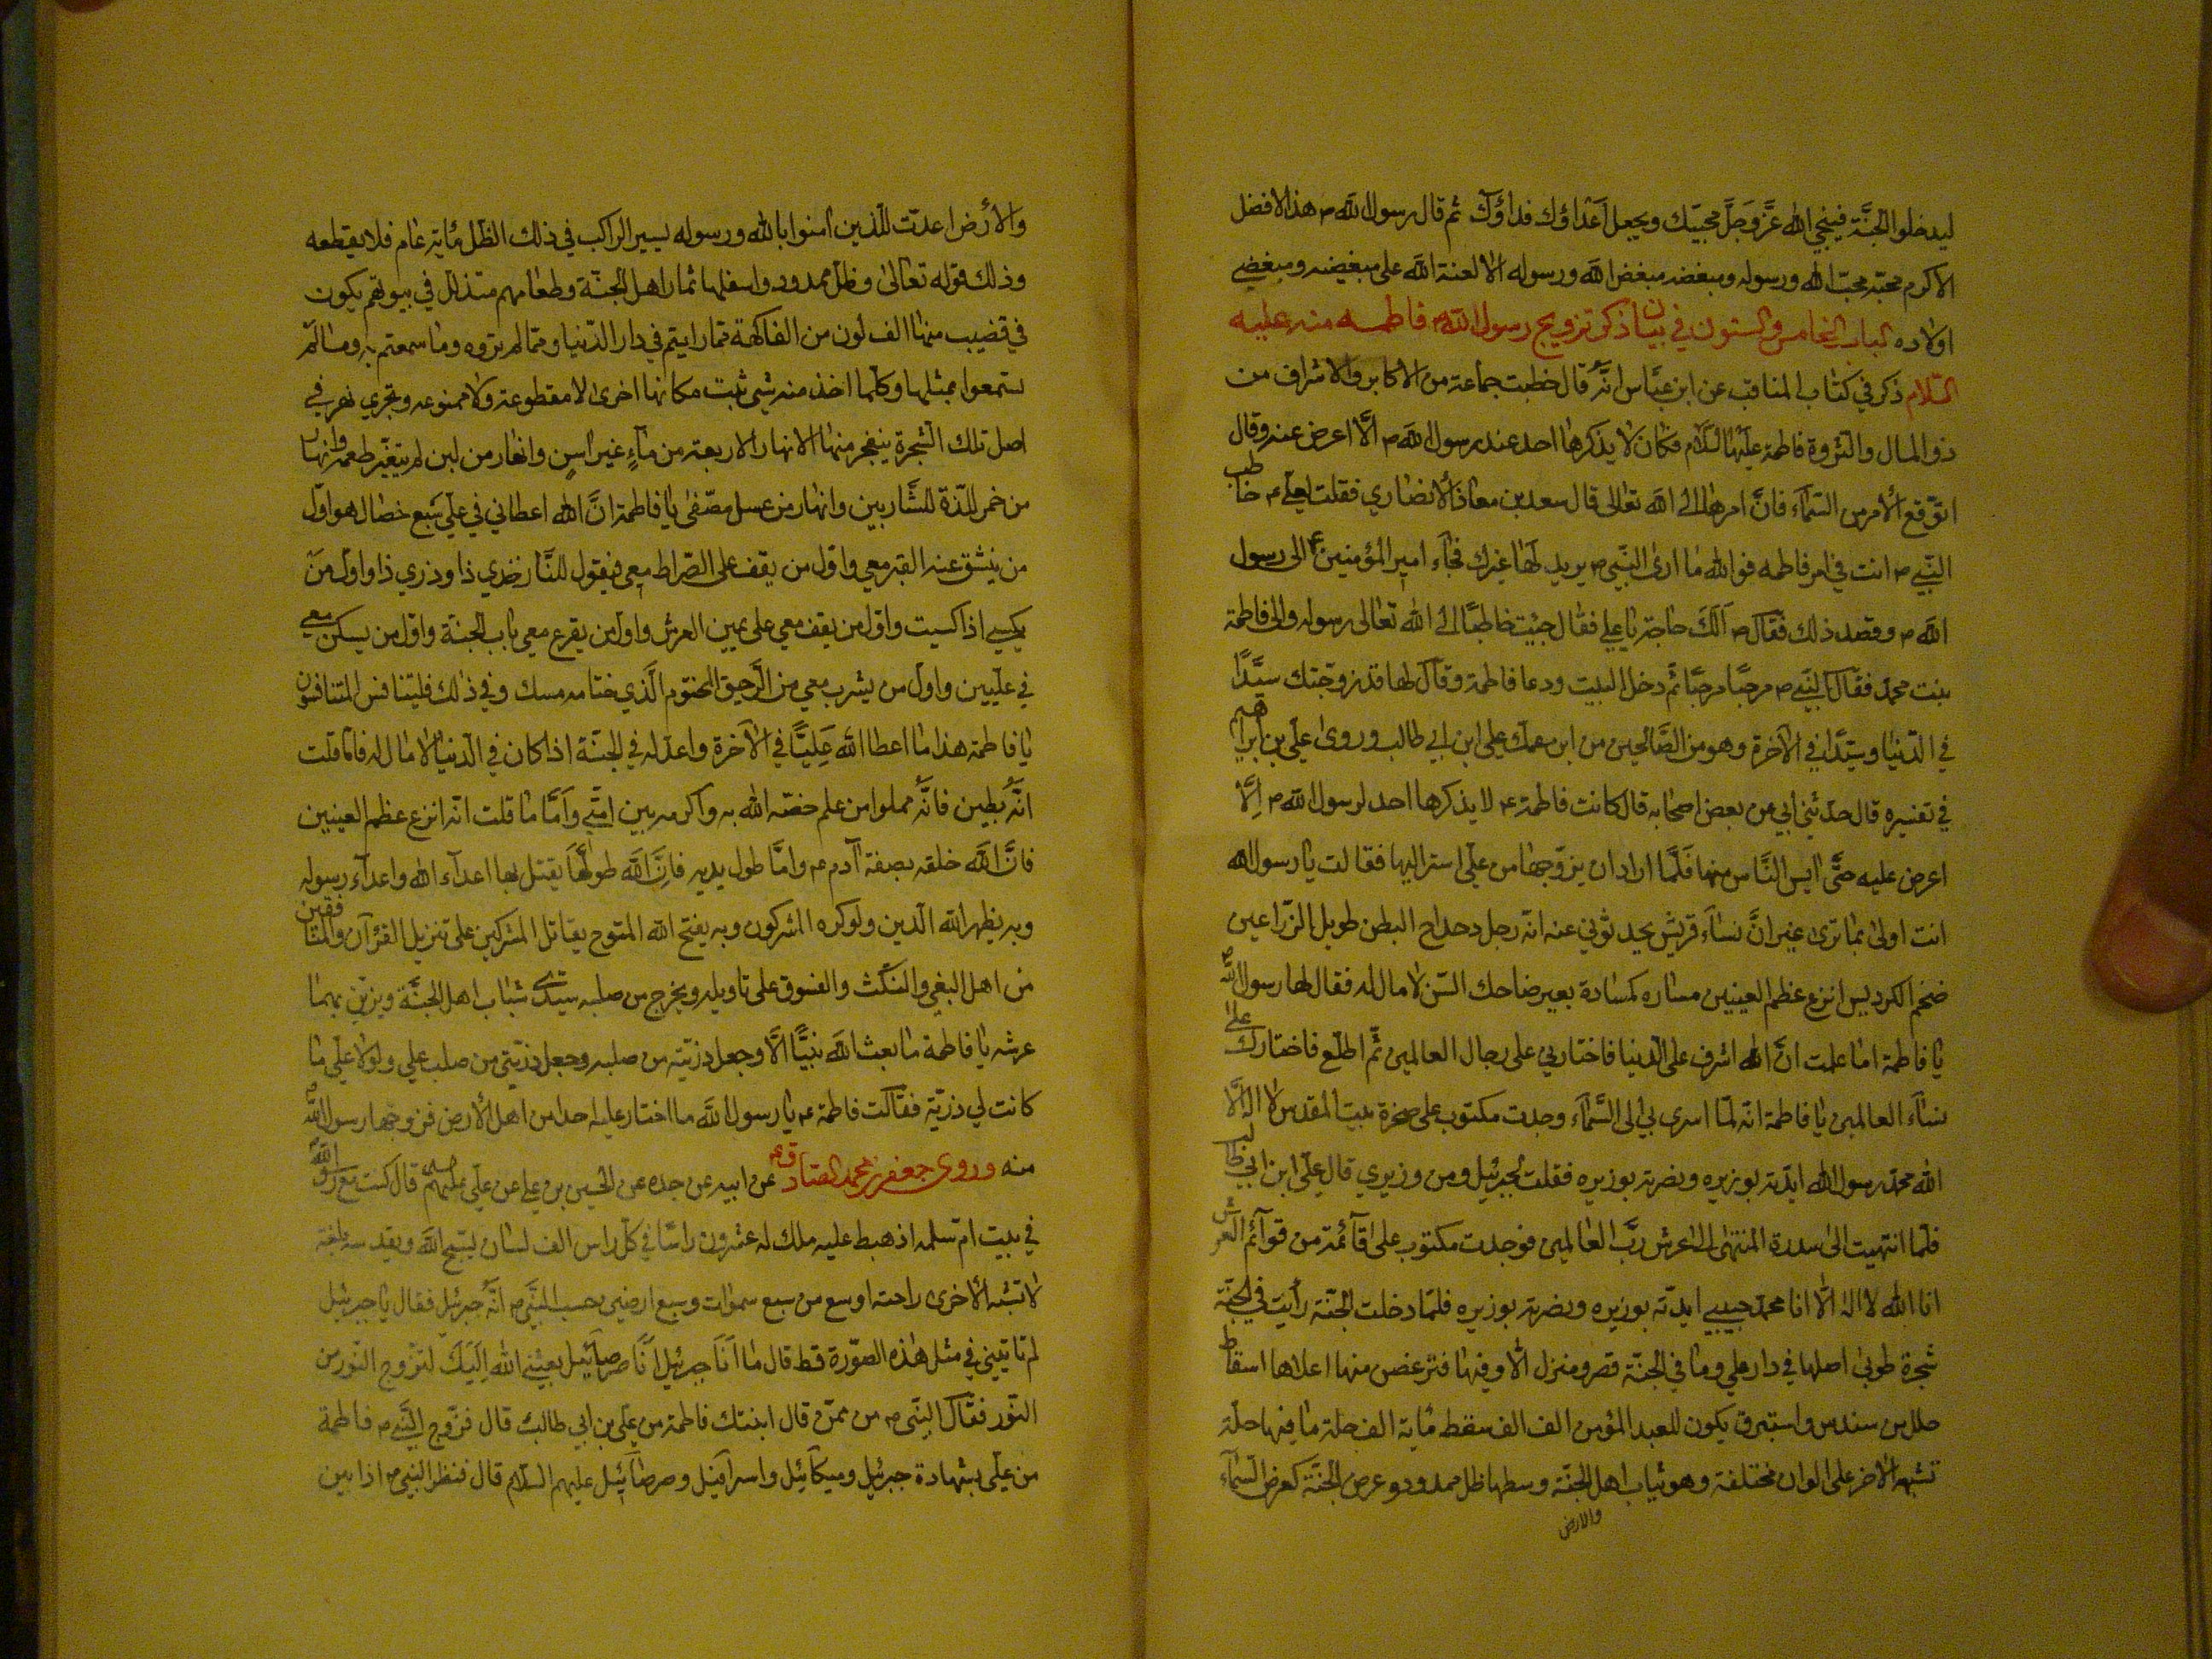 ليدخلوا الجنّة فينجي الله عزّ وجلّ محبيك ويجعل اعداؤك فداؤك ثم قال رسول الله ص هذا الافضل
الاكرم محبّه محبّ الله ورسوله ومبغضه مبغض الله ورسوله الا لعنة الله على مبغضيه ومبغضي
اولاده الباب الخامس والستون في بيان ذكر تزويج رسول الله ص فاطمه منه عليه
السّلام ذكر في كتاب المناقب عن ابن عبّاس انّه قال خطبت جماعة من الاكابر والاشراف من
ذو المال والثروة فاطمة عليها السّلام فكان لا يذكرها احد عند رسول الله ص الّا اعرض عنه وقال
اتوقّع الأمر من السّماء فانّ امرها الى الله تعالى قال سعد بن معاذ الأنصاري فقلت لعليّ ع خاطب
النّبي ص انت في امر فاطمه فوالله ما ارى النّبي ص يريد لها غيرك فجاء امير المؤمنين ع الى رسول
الله ص وقصد ذلك فقال ص ألك حاجة يا علي فقال جئت خاطبًا الى الله تعالى رسوله والى فاطمة
بنت محمد فقال النّبي ص مرحبًا مرحبًا ثم دخل البيت ودعا فاطمة وقال لها قد زوّجتك سيّدًا
في الدّنيا وسيّدًا في الآخرة وهو من الصّالحين من ابن عمك علي ابن ابي طالب وروى علي بن ابراهيم
في تفسيره قال حدّثني ابي عن بعض اصحابه قال كانت فاطمة ع لا يذكرها احد لرسول الله ص الّا
اعرض عليه حتّى ايس النّاس منها فلمّا اراد ان يزوّجها من علي استر اليها فقالت يا رسول الله
انت اولى بما ترى غير انّ نساء قريش يحدثوني عنه انه رجل دحداح البطن طويل الذّراعين
ضخم الكرديس انزع عظم العينين مساره كمسادة بعير ضاحك السّن لا مال له فقال لها رسول الله ص
يا فاطمة اما علمت انّ الله اشرف على الدّنيا فاختارني على رجال العالمين ثمّ اطلّع فاختارك على
نساء العالمين يا فاطمة انه لمّا اسرى بي الى السّماء وجدت مكتوب على صخرة بيت المقدس لا اله الّا
الله محمّد رسول الله ايدته بوزيره ونصرته بوزيره فقلت لجبرئيل ومن وزيري قال عليّ ابن ابي طالب
فلمّا انتهيت الى سدرة المنتهى الى عرش ربّ العالمين فوجدت مكتوب على قائمة من قوائم العرش
انا الله لا اله الّا انا محمّد حبيبي ايدته بوزيره ونصرته بوزيره فلمّا دخلت الجنّة رأيت في الجنّة
شجرة طوبى اصلها في دار علي وما في الجنّة قصر ومنزل الّا وفيها فتر غصن منها اعلاها اسقاط
حلل من سندس واستبرق يكون للعبد المؤمن الف الف سقط مأية الف حلة ما فيها حلة
تشبه الاخر على الوان مختلفة وهو ثياب اهل الجنّة وسطها ظل ممدود وعرض الجنّة كعرض السّماء
والارض
والأرض اعدّت للّذين آمنوا بالله ورسوله يسير الراكب في ذلك الظّل مأية عام فلا يقطعه
وذلك قوله تعالى وظلّ ممدود واسفلها ثمار اهل الجنّة وطعامهم متذلل في بيوتهم يكون
في قضيب منها الف لون من الفاكهة ممّا رايتم في دار الدّنيا وممّا لم تروه وما سمعتم به وما لم
تستمعوا بمثلها وكلّما اخذ منه شي نبت مكانها اخرى لا مقطوعة ولا ممنوعه وتجري نهر في
اصل تلك الشّجرة ينفجر منها الانهار الاربعة من ماء غير آسن وانهار من لبن لم يتغيّر طعمه وانهار
من خمر للذّة للشّاربين وانهار من عسل مصفّى يا فاطمة انّ الله اعطاني في علي سبع خصال هو اوّل
من ينشق عنه القبر معي واوّل من يقف على الصّراط معي فيقول للنّار خذي ذا وذري ذا واول من
يكسى اذا كسيت واوّل من يقف معي على يمين العرش واوّل من يقرع معي باب الجنة واوّل من يسكن معي
في علّيين واوّل من يشرب معي من الرّحيق المختوم الّذي ختامه مسك وفي ذلك فليتنافس المتنافسون
يا فاطمة هذا ما اعطا الله عليًّا في الآخرة واعدّ له في الجنّة اذا كان في الدّنيا لا مال له فامّا قلت
انّه بطين فانّه مملوا من علم خصّه الله به واكرمه بين امتي وامّا ما قلت انّه انزع عظم العينين
فانّ الله خلقه بصفة آدم ع وامّا طول يديه فانّ الله طولّها يقتل بها اعداء الله واعداء رسوله
وبه يظهر الله الّدين ولو كره المشركون وبه يفتح الله الفتوح يقاتل المشركين على تنزيل القرآن والمنافقين
من اهل البغي والنكث والفسوق على تاويله ويخرج من صلبه سيّدي شباب اهل الجنّة ويزيّن بهما
عرشه يا فاطمة ما بعث الله نبيًّا الّا وجعل ذرّيته من صلبه وجعل ذرّيتي من صلب علي ولولا علي ما
كانت لي ذرّيّة فقالت فاطمة ع يا رسول الله ما اختار عليه احدا من اهل الأرض فزوجها رسول الله ص
منه وروى جعفر بن محمد الصّادق ع عن ابيه عن جده عن الحسين بن علي عن علي عليهم السلام قال كنت مع رسول الله
في بيت امّ سلمه اذ هبط عليه ملك له عشرون راسًا في كلّ راس الف لسان يسبّح الله ويقدسه بلغة
لا تشبه الأخرى راحته اوسع من سبع سموات وسبع ارضين حسب النّبي ص انّه جبرئيل فقال يا جبرئيل
لم تاتيني في مثل هذه الصّورة قط قال ما انا جبرئيل انا صرصائيل بعثني الله اليك لتزوج النّور من
النّور فقال النّبي ص من ممّن قال ابنتك فاطمة من علي بن ابي طالب قال فزّوج النّبي ص فاطمة
من علي بشهادة جبرئيل وميكائيل واسرافيل وصرصائيل عليهم السلام قال فنظر النبي ص اذا بين